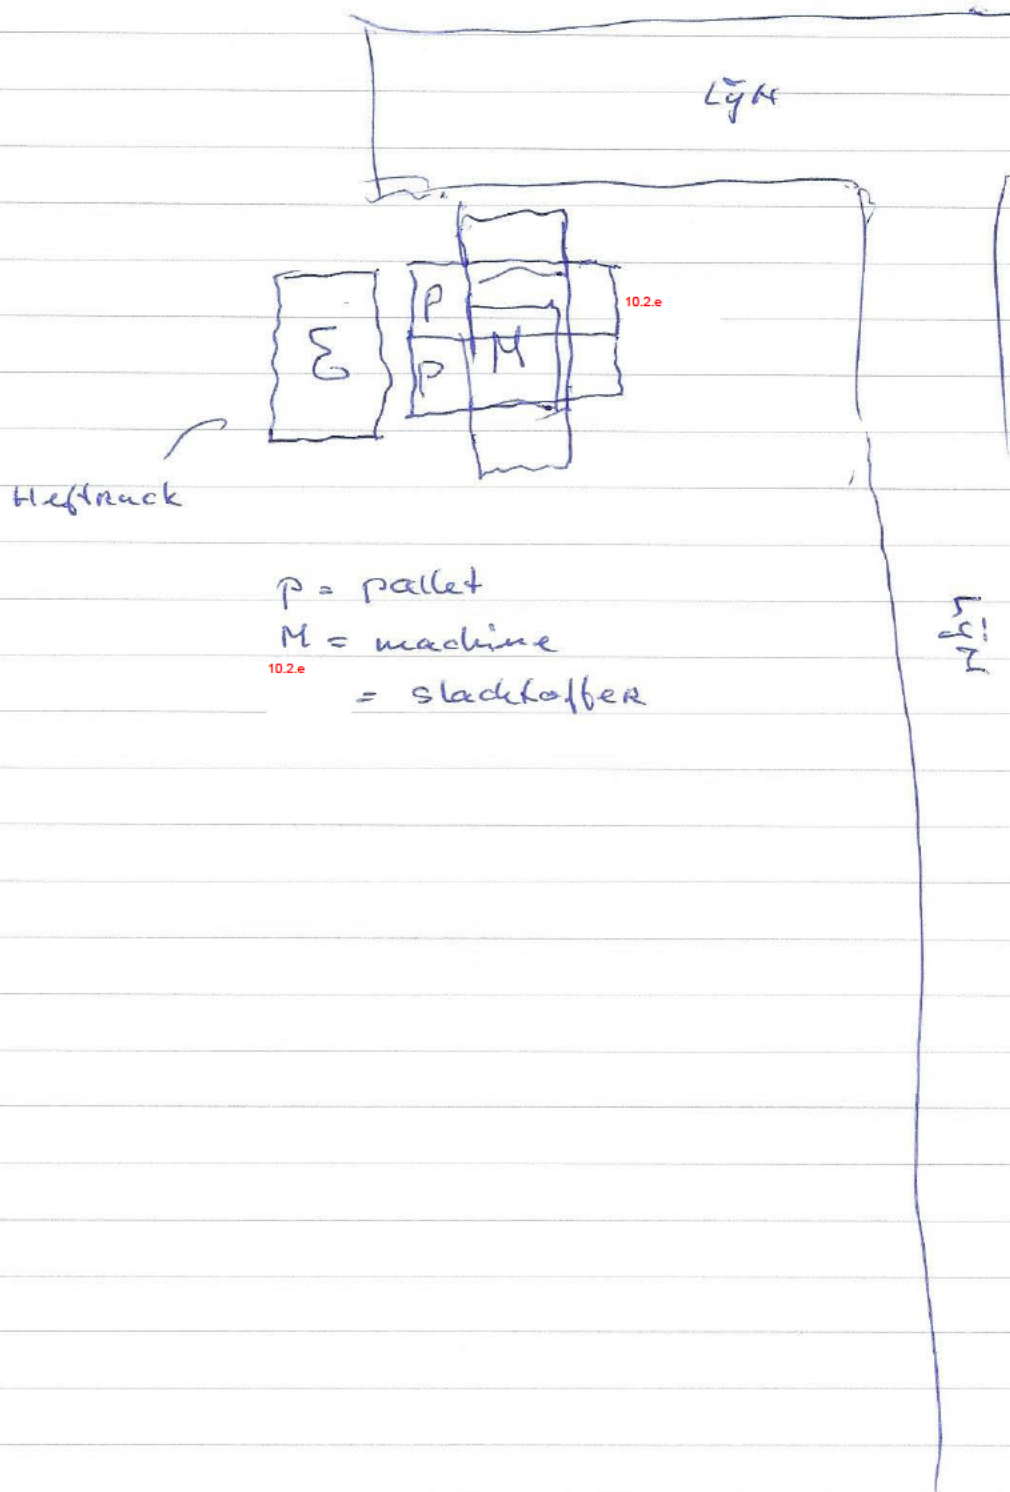 Lijn
P
10.2.e
M
P
Heftruck
P = pallet
M = machine
10.2.e
= slachtoffer
Lijn